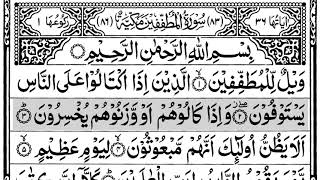 اٰیَاتُهَا ٣٦ (٨٣) سُوْرَةُ الْمُطَفِّفِیْنَ مَكِّیَّةٌ (٨٦) رُكُوْعُهَا ١
بِسْمِ اللهِ الرَّحْمٰنِ الرَّحِیْمِ
وَیْلٌ لِّلْمُطَفِّفِیْنَ ۙ﴿١﴾ الَّذِیْنَ اِذَا اكْتَالُوْا عَلَی النَّاسِ
یَسْتَوْفُوْنَ ﴿٢﴾ وَاِذَا كَالُوْهُمْ اَوْ وَّزَنُوْهُمْ یُخْسِرُوْنَ ﴿٣﴾
اَلَا یَظُنُّ اُولٰٓئِكَ اَنَّهُمْ مَّبْعُوْثُوْنَ ﴿٤﴾ لِیَوْمٍ عَظِیْمٍ ﴿٥﴾